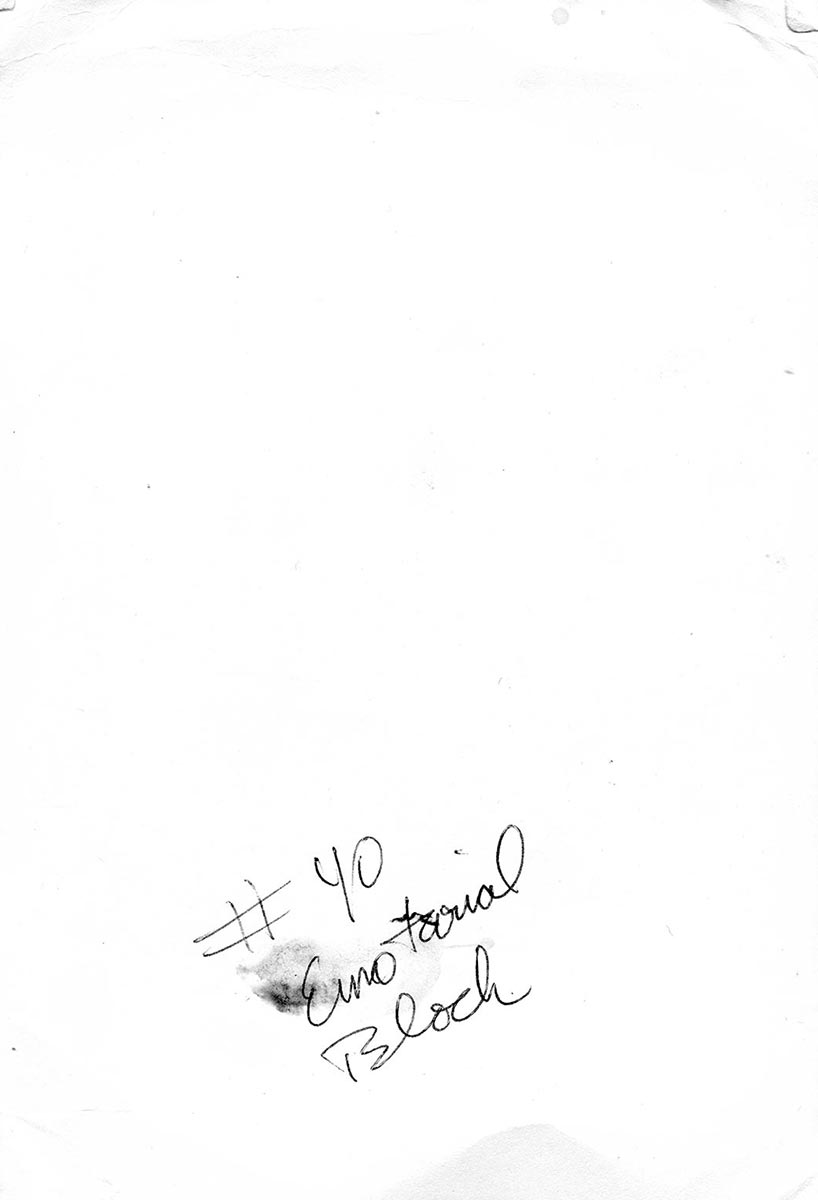 # 40
Emotional
Block